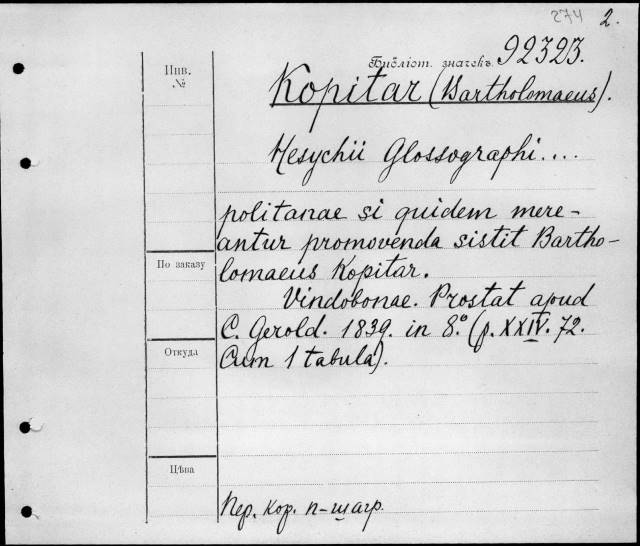 274 2.
Библіот. значекъ. 92323.
Инв.
№
Kopitar (Bartholomaeus).
Hesychii Glossographi....
politanae si quidem mere-
antur promovenda sistit Bartho-
lomaeus Kopitar.
По заказу
Vindobonae. Prostat apud
C. Gerold. 1839. in 8.° (p. XXIV. 72.
Откуда
Cum 1 tabula).
Цѣна
Пер. кор. п-шагр.